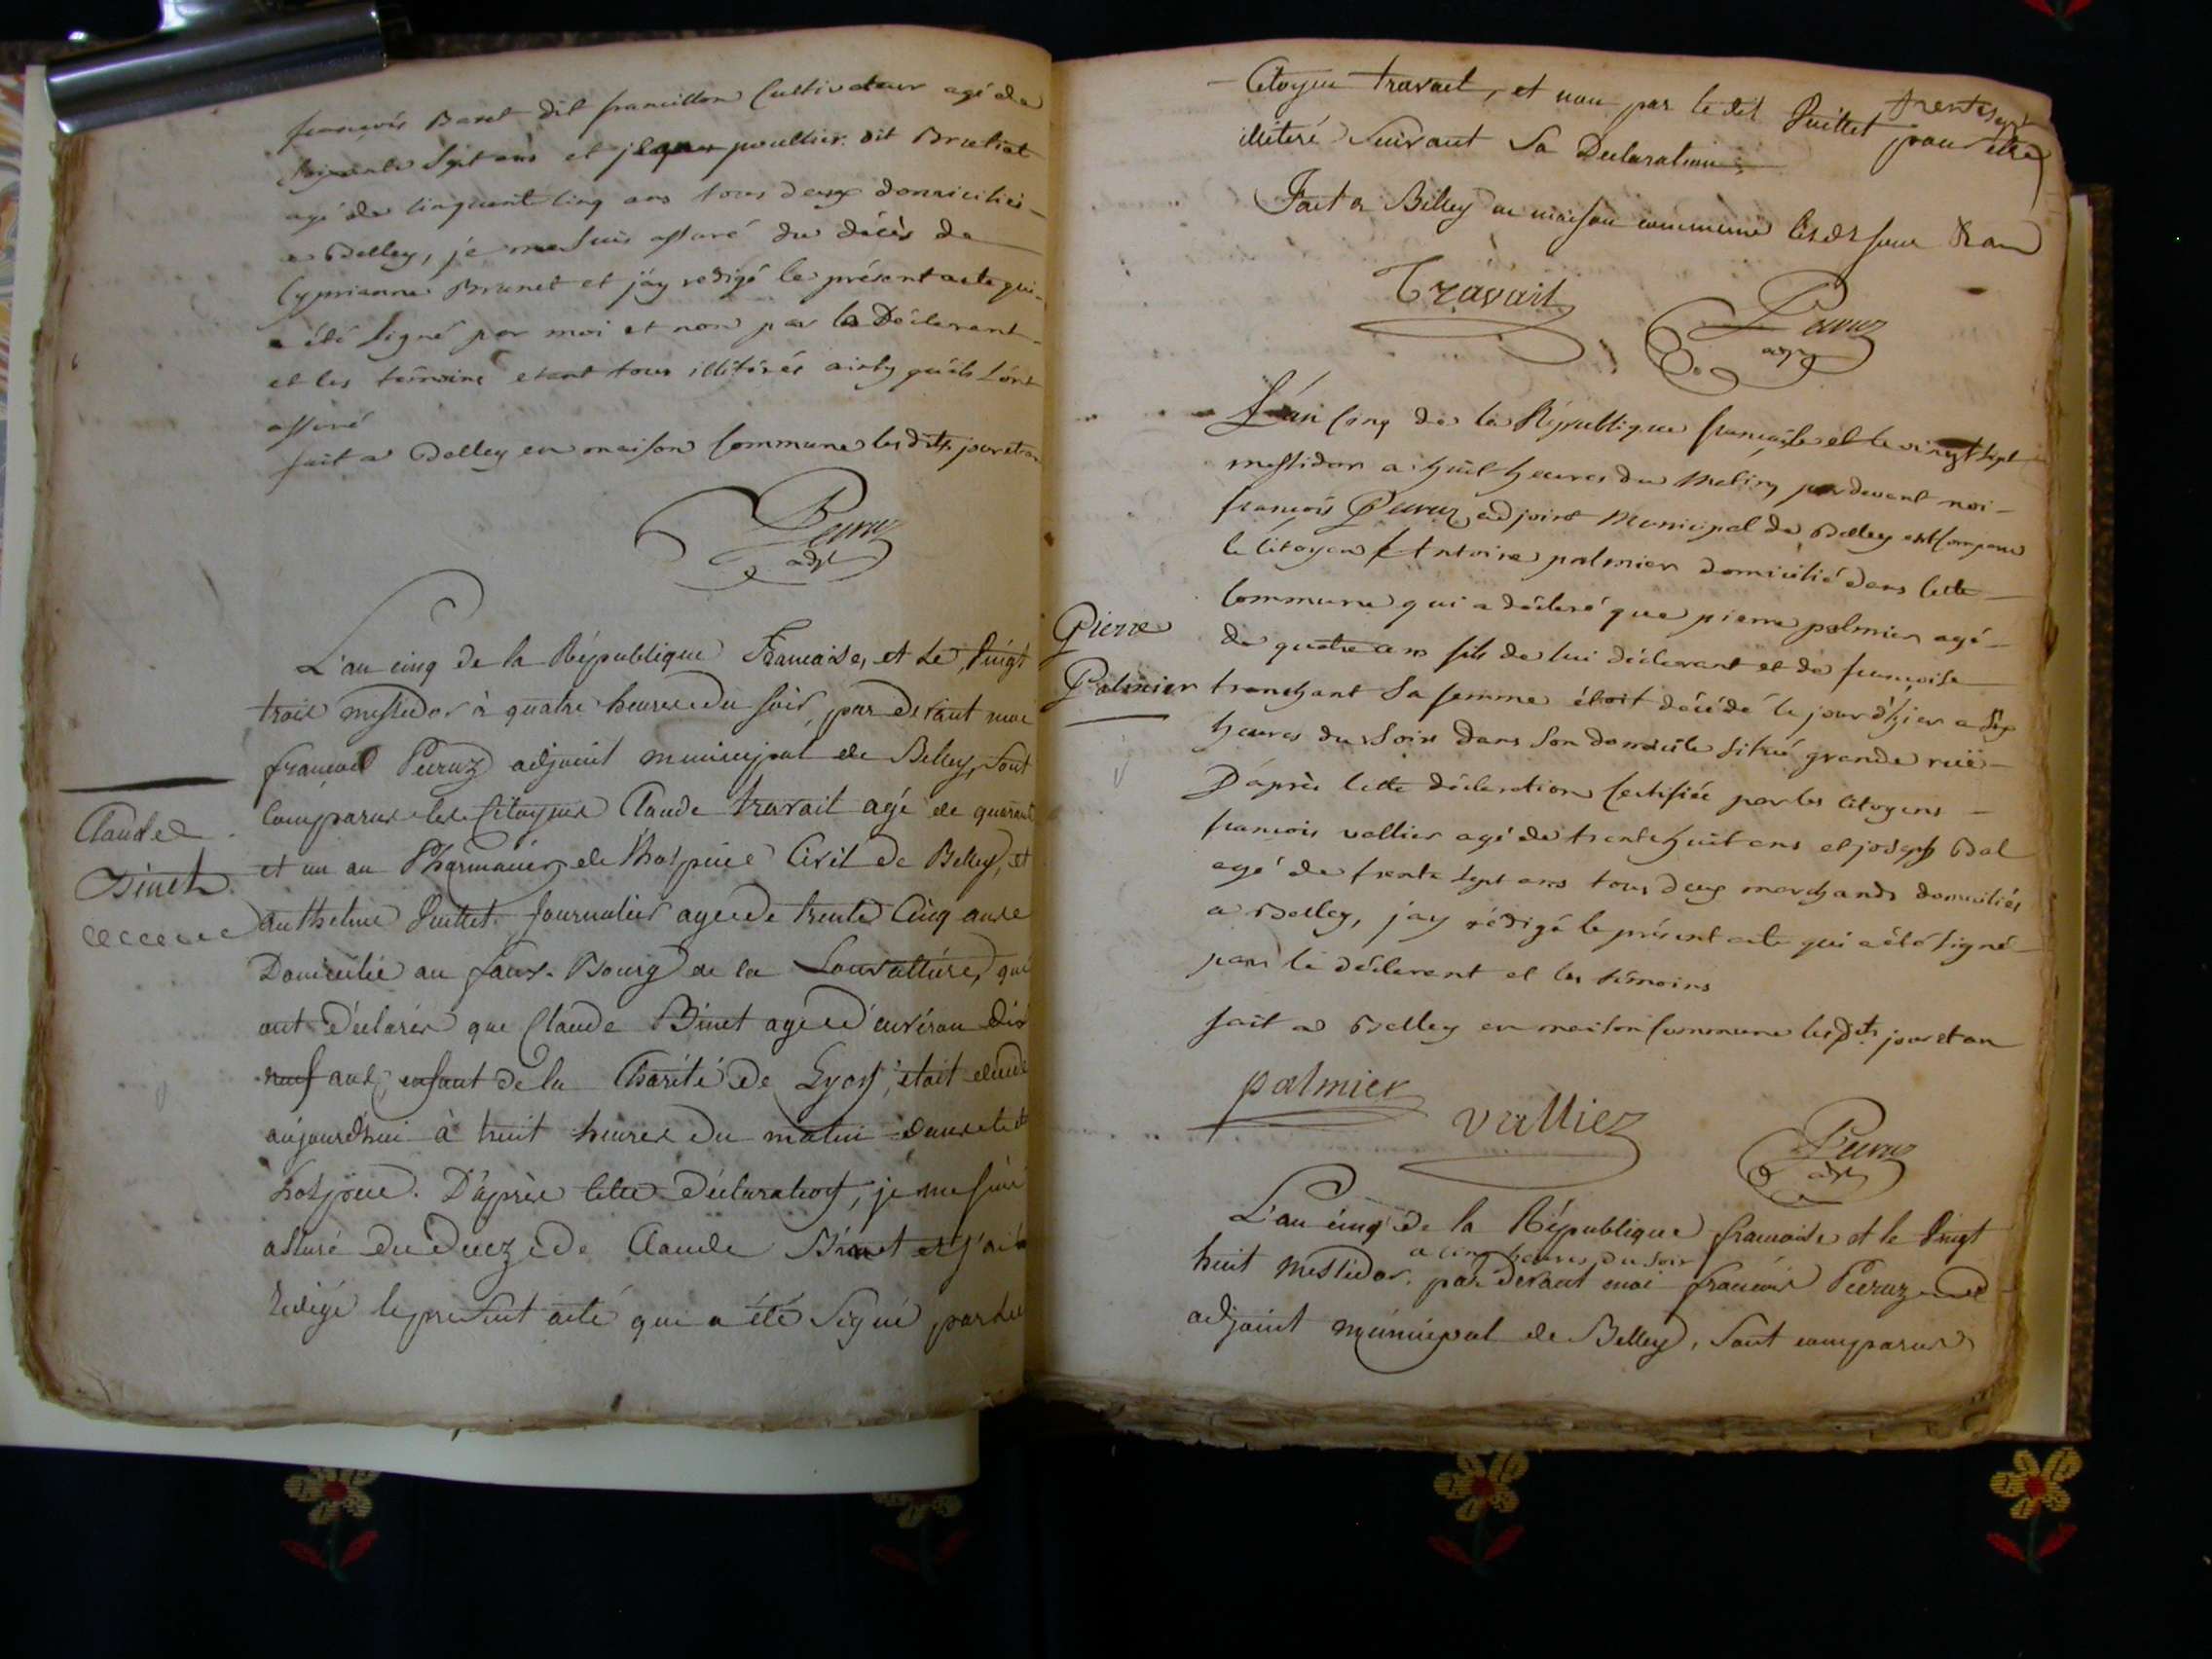 françois Baret dit francillon Cultivateur agé de
soixante Sept ans et jeaques poultier dit Brutiat
agé de Cinquente Cinq ans tous deux domiciliés
a Belley, je me suis assuré du décès de
Cyprianne Brunet et j'ay redigé le présent acte qui
a été signé par moi et non par la Déclarant
et les témoins etant tous illitérés ainsy qu'ils l'ont
assuré
fait a Belley en maison Commune les dits jour et an
Peruz
adjt
L'an cinq de la République Francaise, et le Vingt
trois messidor à quatre heures du soir, par devant moi
francois Peruz adjoint municipal de Belley, sont
Comparus les Citoyens Claude travait agé de quarante
et un an Pharmacien de l'hospice Civil de Belley, et
anthelme Juillet Journalier agé de trente Cinq ans
Domicilié au faux-Bourg de la qui
ont déclarés que Claude Binet agé d'environ dix
neuf ans, enfant de la Charité de Lyon, était décédé
aujourd'hui à huit heures du matin dans le dt
hospice. D'après cette déclaration, je me suis
assuré du decez de Claude Binet et j'ai
Redigé le present acte qui a été Signé par le
Claude
Binet
Citoyen travait, et non par le dit Juillet pour etre
trente sept
illiteré Suivant Sa Declaration
Fait a Belley en maison commune les dts jour & an
Travait
Peruz
adjt
L'an Cinq de la République française et le vingt sept
messidor a huit heures du Matin par devant moi
françois Peruz adjoint Municipal de Belley est Comparu
le Citoyen Antoine palmier domicilié dans cette
Commune qui a déclaré que pierre palmier agé
de quatre ans fils de lui déclarant et de françoise
tranchant sa femme étoit décédé le jour d'hier a six
heures du Soir dans Son domicile situé grande rüe
D'après cette déclaration Certifiée par les Citoyens
françois vallier agé de trente huit ans et joseph Bal
agé de trente sept ans tous deux marchands domiciliés
a Belley, j'ay rédigé le présent acte qui a été signé
par le déclarant et les témoins
fait a Belley en maison Commune les dts jour et an
palmier
vallier
Peruz
adjt
Pierre
Palmier
L'an cinq de la République francaise et le Vingt
a cinq heures du soir
huit Messidor par devant moi francois Peruz
adjoint municipal de Belley, Sont comparus